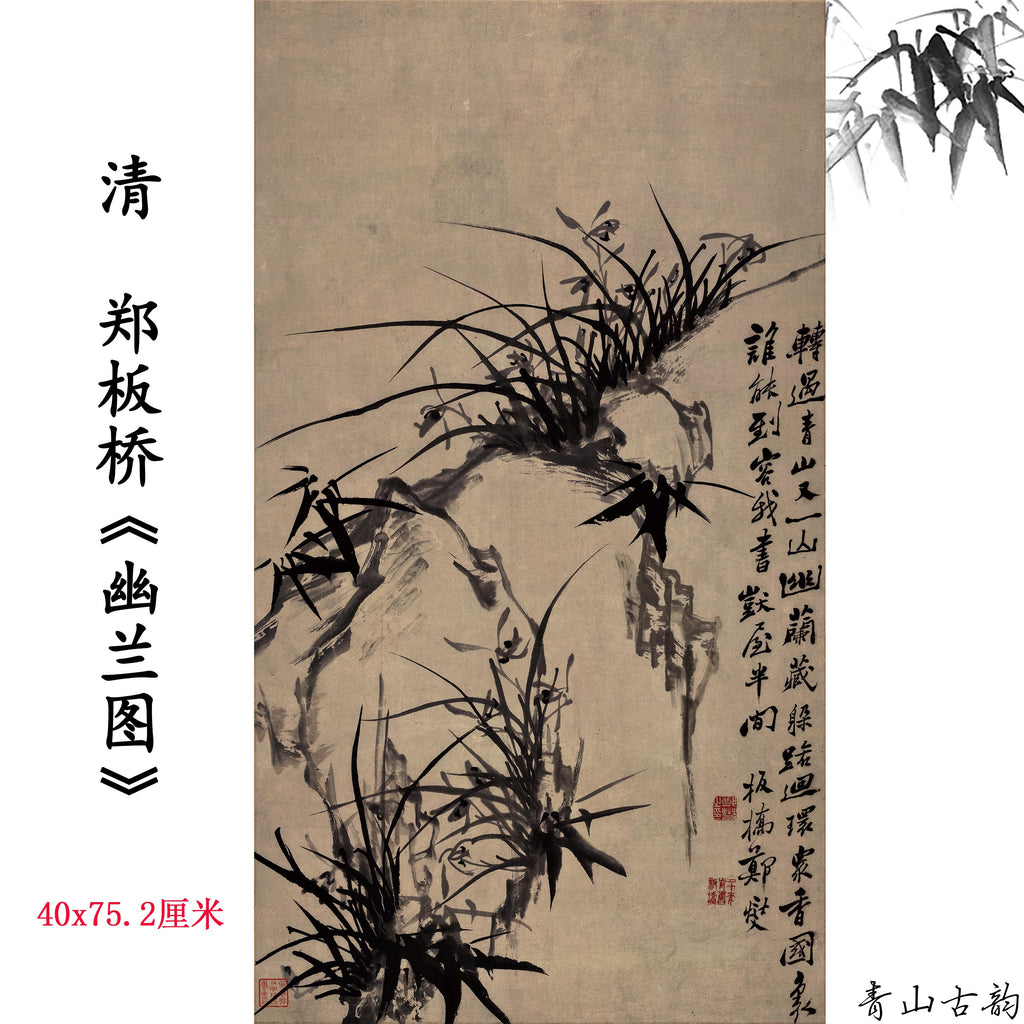 清 郑板桥《幽兰图》
40x75.2厘米
轉過青山又一山幽蘭藏躲路迴環衆香國裏
誰能到容我書獃屋半間 板橋鄭燮
青山古韵